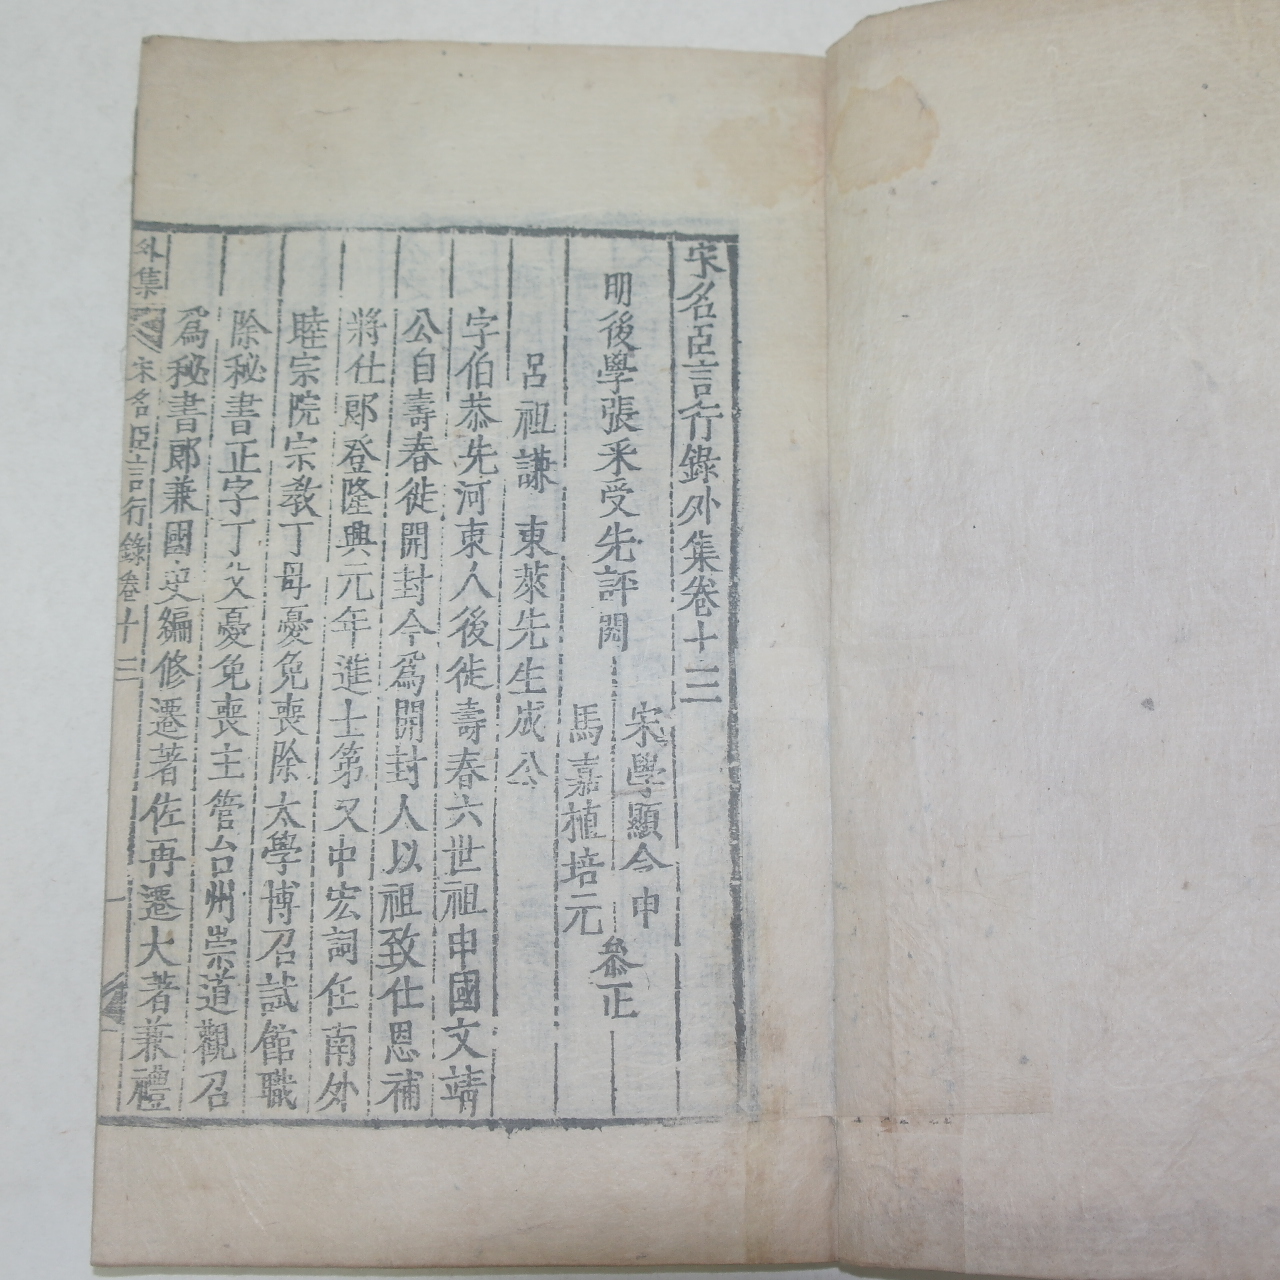 宋名臣言行錄外集卷十三
明後學張采受先評閱
宋學顯令申
馬嘉植培元
叅正
呂祖謙 東萊先生成公
字伯恭先河東人後徙壽春六世祖申國文靖
公自壽春徙開封今爲開封人以祖致仕恩補
將仕郎登隆興元年進士第又中宏詞任南外
睦宗院宗教丁母憂免喪除太學博召試館職
除秘書正字丁父憂免喪主管台州崇道觀召
爲秘書郎兼國史編修遷著佐再遷大著兼禮
外集 宋名臣言行錄卷十三 一